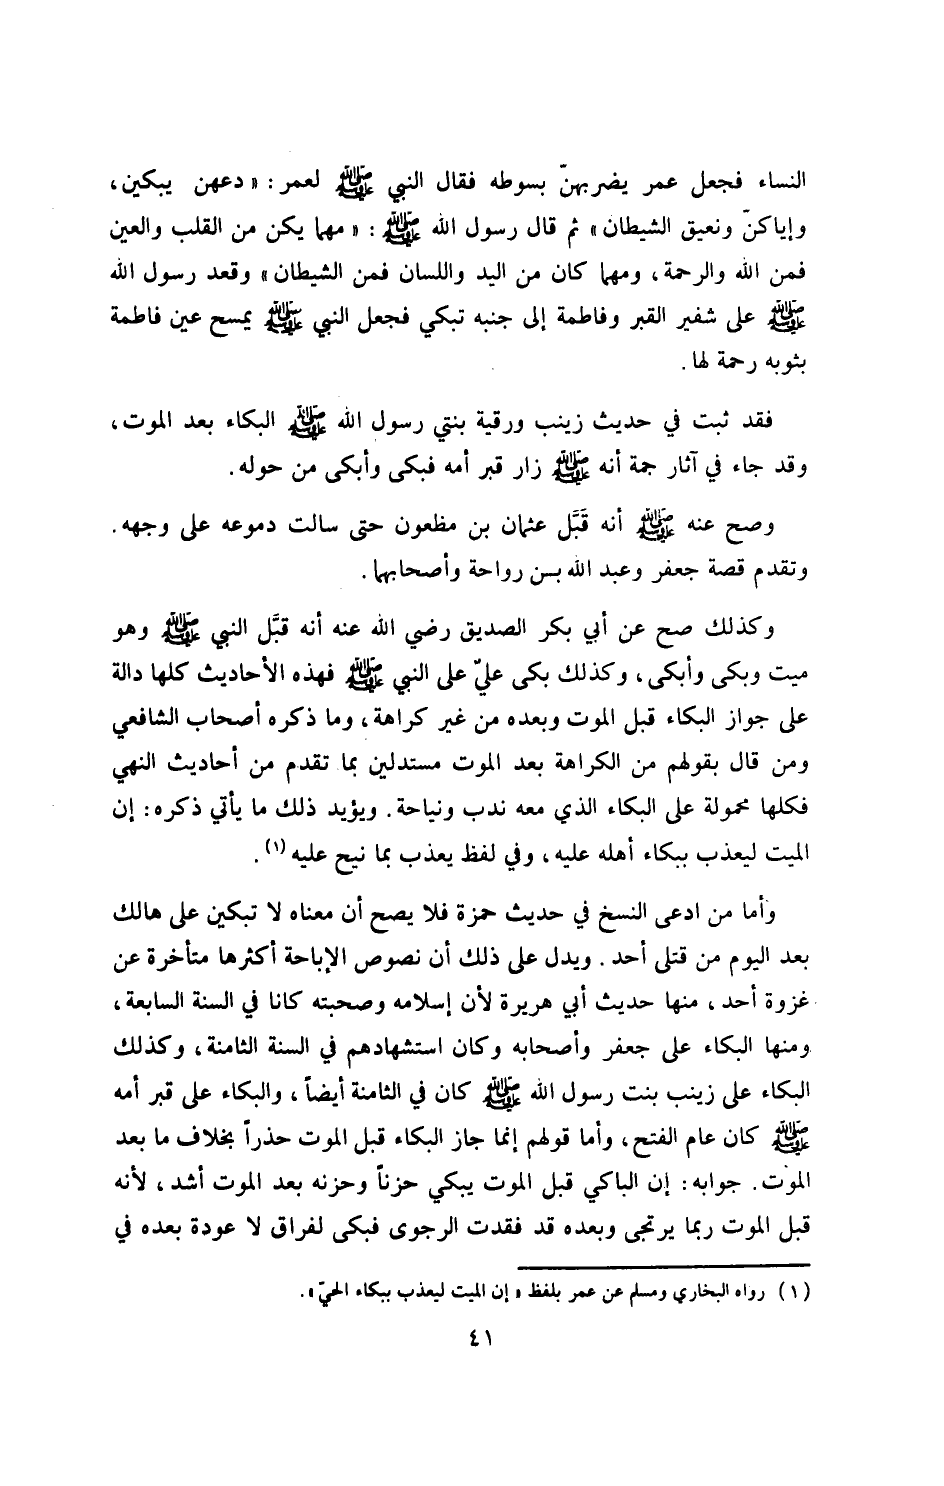 النساء فجعل عمر يضربهنّ بسوطه فقال النبي ﷺ لعمر: «دعهن يبكين،
وإياكنّ ونعيق الشيطان» ثم قال رسول الله ﷺ: «مهما يكن من القلب والعين
فمن الله والرحمة، ومهما كان من اليد واللسان فمن الشيطان» وقعد رسول الله
ﷺ على شفير القبر وفاطمة إلى جنبه تبكي فجعل النبي ﷺ يمسح عين فاطمة
بثوبه رحمة لها.
فقد ثبت في حديث زينب ورقية بنتي رسول الله ﷺ البكاء بعد الموت،
وقد جاء في آثار جمة أنه ﷺ زار قبر أمه فبكى وأبكى من حوله.
وصح عنه ﷺ أنه قَبَّل عثمان بن مظعون حتى سالت دموعه على وجهه.
وتقدم قصة جعفر وعبد الله بن رواحة وأصحابهما.
وكذلك صح عن أبي بكر الصديق رضي الله عنه أنه قبَّل النبي ﷺ وهو
ميت وبكى وأبكى، وكذلك بكى عليّ على النبي ﷺ فهذه الأحاديث كلها دالة
على جواز البكاء قبل الموت وبعده من غير كراهة، وما ذكره أصحاب الشافعي
ومن قال بقولهم من الكراهة بعد الموت مستدلين بما تقدم من أحاديث النهي
فكلها محمولة على البكاء الذي معه ندب ونياحة. ويؤيد ذلك ما يأتي ذكره: إن
الميت ليعذب ببكاء أهله عليه، وفي لفظ يعذب بما نيح عليه(١).
وأما من ادعى النسخ في حديث حمزة فلا يصح أن معناه لا تبكين على هالك
بعد اليوم من قتلى أحد. ويدل على ذلك أن نصوص الإباحة أكثرها متأخرة عن
غزوة أحد، منها حديث أبي هريرة لأن إسلامه وصحبته كانا في السنة السابعة،
ومنها البكاء على جعفر وأصحابه وكان استشهادهم في السنة الثامنة، وكذلك
البكاء على زينب بنت رسول الله ﷺ كان في الثامنة أيضاً، والبكاء على قبر أمه
ﷺ كان عام الفتح، وأما قولهم إنما جاز البكاء قبل الموت حذراً بخلاف ما بعد
الموت. جوابه: إن الباكي قبل الموت يبكي حزناً وحزنه بعد الموت أشد، لأنه
قبل الموت ربما يرتجى وبعده قد فقدت الرجوى فبكى لفراق لا عودة بعده في
(١) رواه البخاري ومسلم عن عمر بلفظ «إن الميت ليعذب ببكاء الحيّ».
٤١